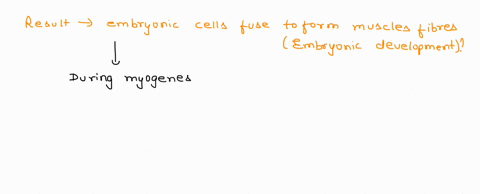 Result → embryonic cells fuse to form muscles fibres
(Embryonic development)?
During myogenes